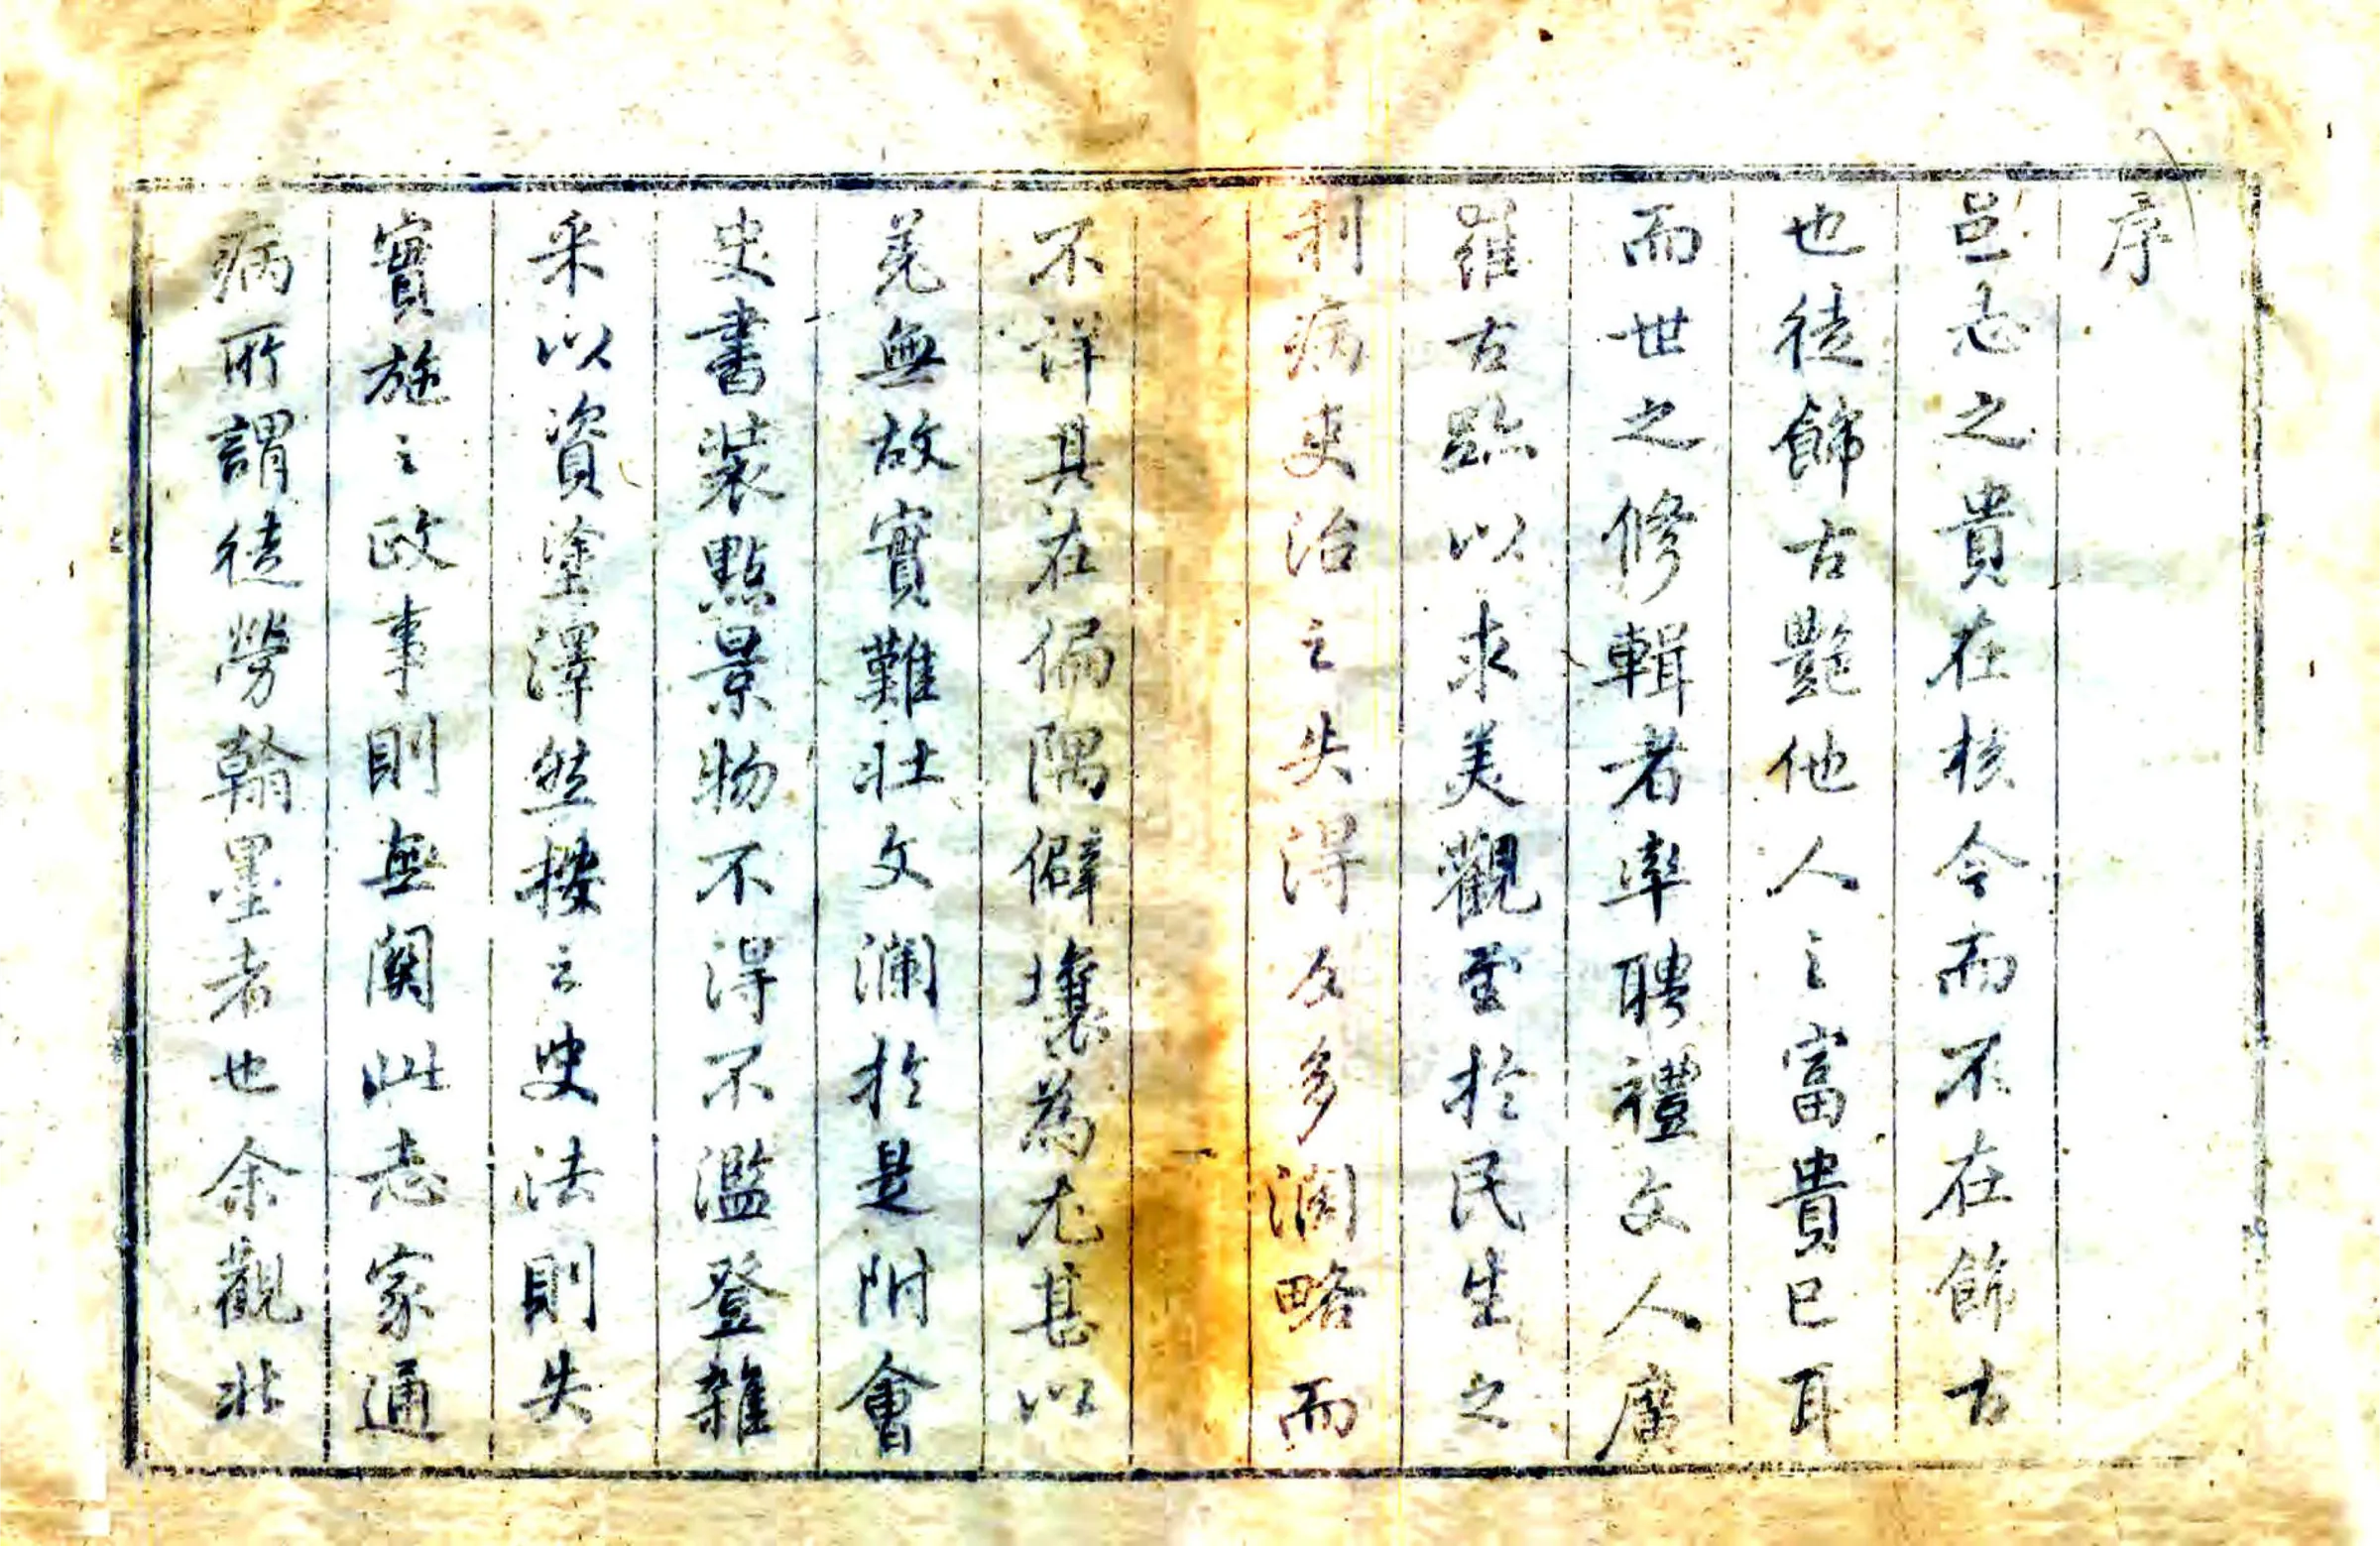 序
邑志之貴在核今而不在飾古
也徒飾古艷他人之富貴已耳
而世之修輯者率聘禮文人廣
蒐古蹟以求美觀至於民生之
利病吏治之失得反多濶略而
不詳其在偏隅僻壤為尤甚以
羌無故實難壯文瀾於是附會
史書裝點景物不得不濫登雜
采以資塗澤然按之史法則失
實施之政事則無関此志家通
病所謂徒勞翰墨者也余觀壯